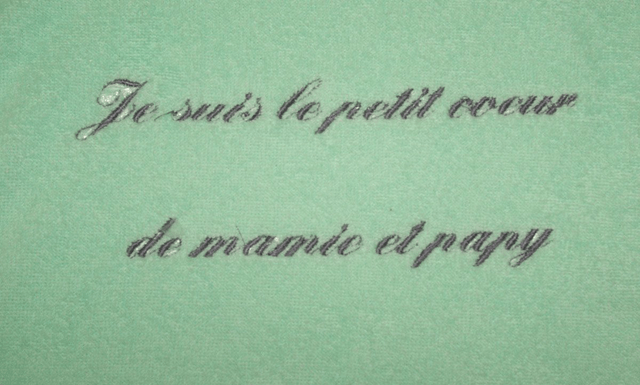 Je suis le petit coeur
de mamie et papy